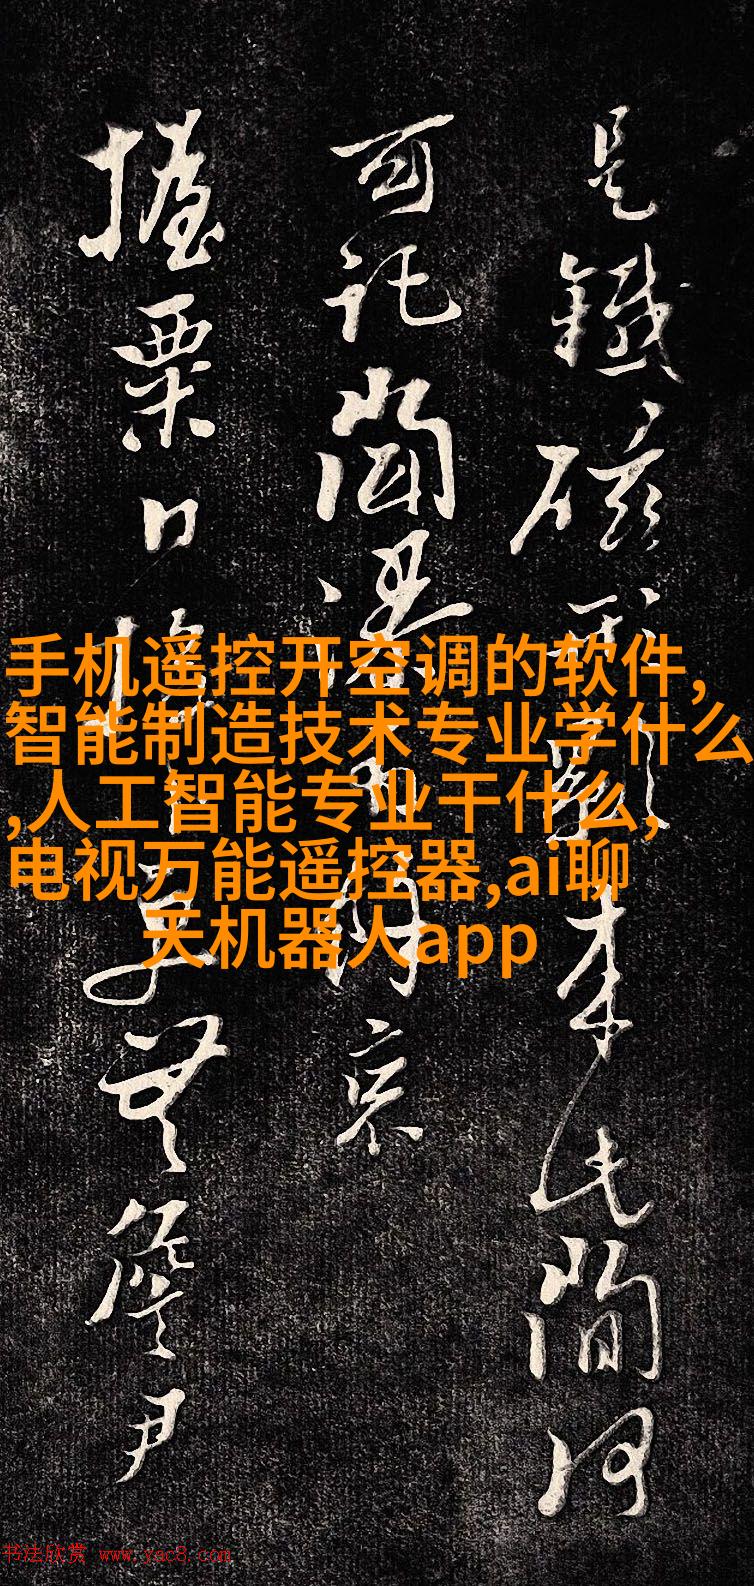 手机遥控开空调的软件,
智能制造技术专业学什么
,人工智能专业干什么,
电视万能遥控器,ai聊
天机器人app
是鐵磁本民間何
可託
握粟無詹尹
书法欣赏 www.yac8.com